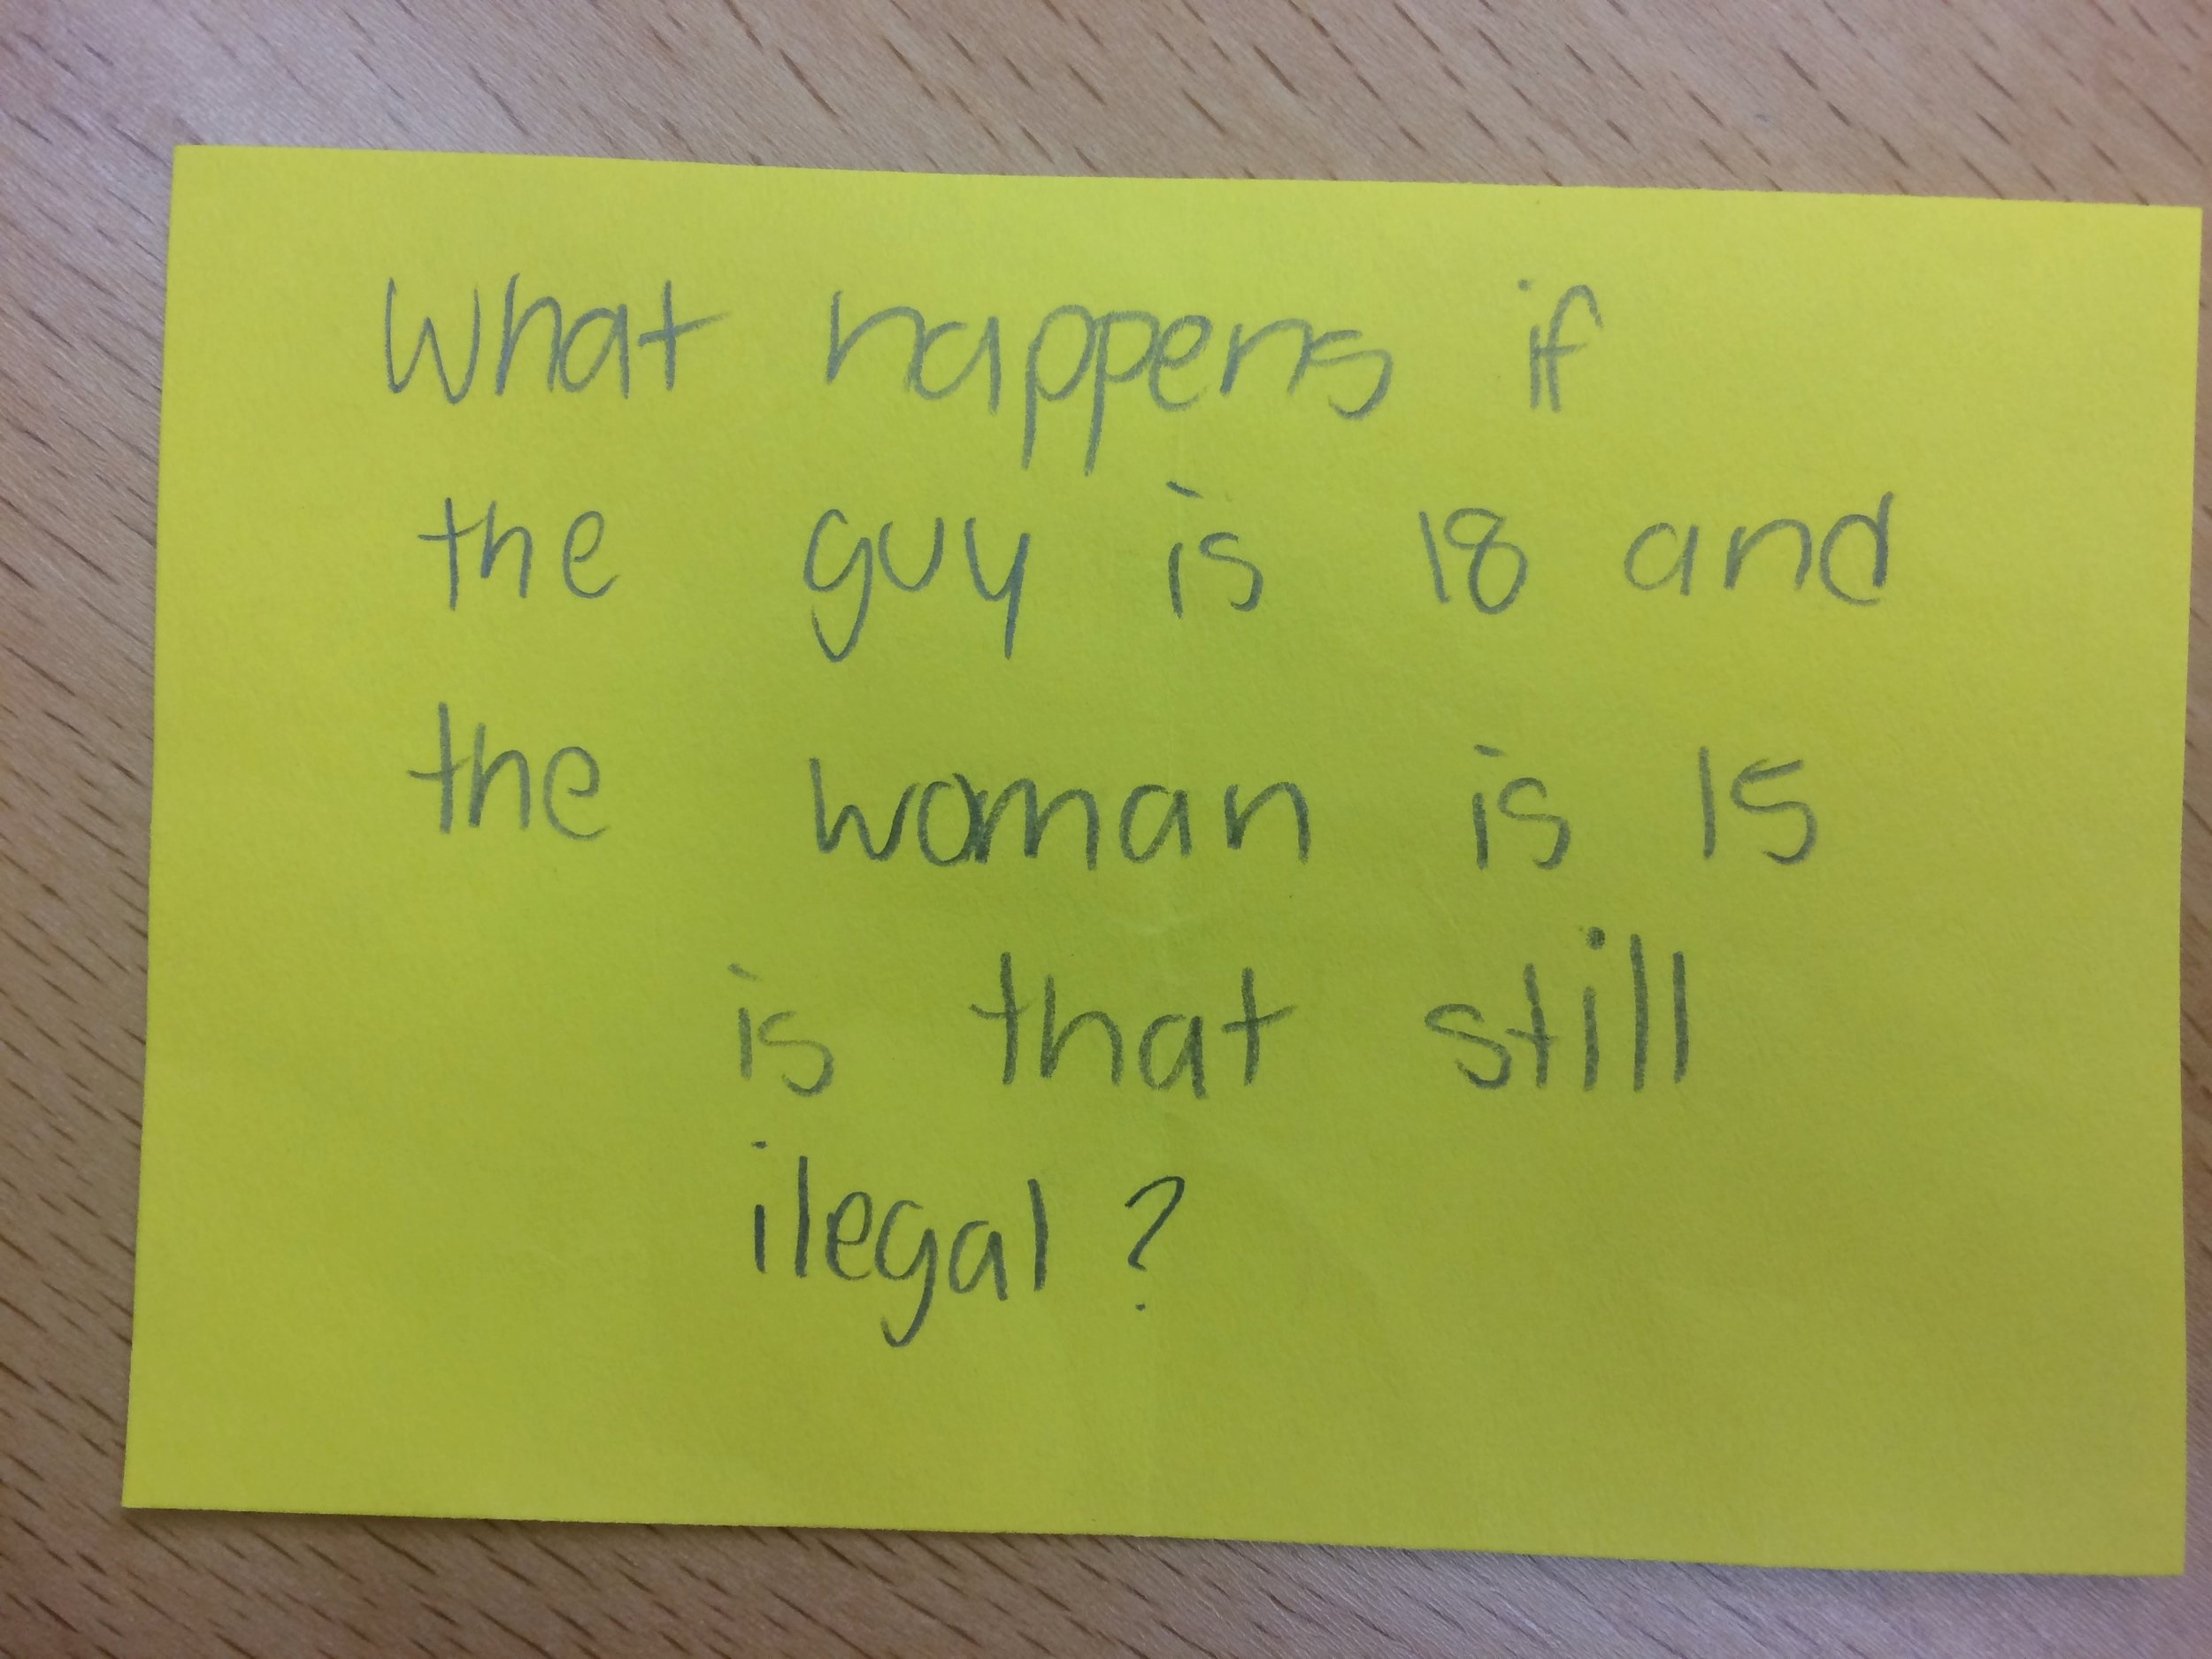 What happens if
the guy is 18 and
the woman is 15
is that still
ilegal?